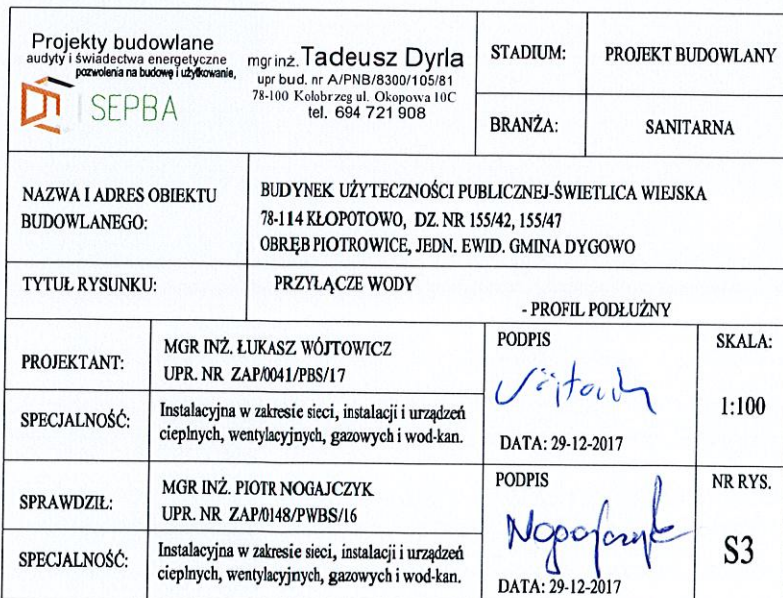 Projekty budowlane
audyty i świadectwa energetyczne
pozwolenia na budowę i użytkowanie,
SEPBA
mgr inż. Tadeusz Dyrla
upr bud. nr A/PNB/8300/105/81
78-100 Kołobrzeg ul. Okopowa 10C
tel. 694 721 908
STADIUM:
PROJEKT BUDOWLANY
BRANŻA:
SANITARNA
NAZWA I ADRES OBIEKTU
BUDOWLANEGO:
BUDYNEK UŻYTECZNOŚCI PUBLICZNEJ-ŚWIETLICA WIEJSKA
78-114 KŁOPOTOWO, DZ. NR 155/42, 155/47
OBRĘB PIOTROWICE, JEDN. EWID. GMINA DYGOWO
TYTUŁ RYSUNKU:
PRZYŁĄCZE WODY
- PROFIL PODŁUŻNY
PROJEKTANT:
MGR INŻ. ŁUKASZ WÓJTOWICZ
UPR. NR ZAP/0041/PBS/17
PODPIS
SKALA:
1:100
SPECJALNOŚĆ:
Instalacyjna w zakresie sieci, instalacji i urządzeń
cieplnych, wentylacyjnych, gazowych i wod-kan.
DATA: 29-12-2017
SPRAWDZIŁ:
MGR INŻ. PIOTR NOGAJCZYK
UPR. NR ZAP/0148/PWBS/16
PODPIS
NR RYS.
S3
SPECJALNOŚĆ:
Instalacyjna w zakresie sieci, instalacji i urządzeń
cieplnych, wentylacyjnych, gazowych i wod-kan.
DATA: 29-12-2017